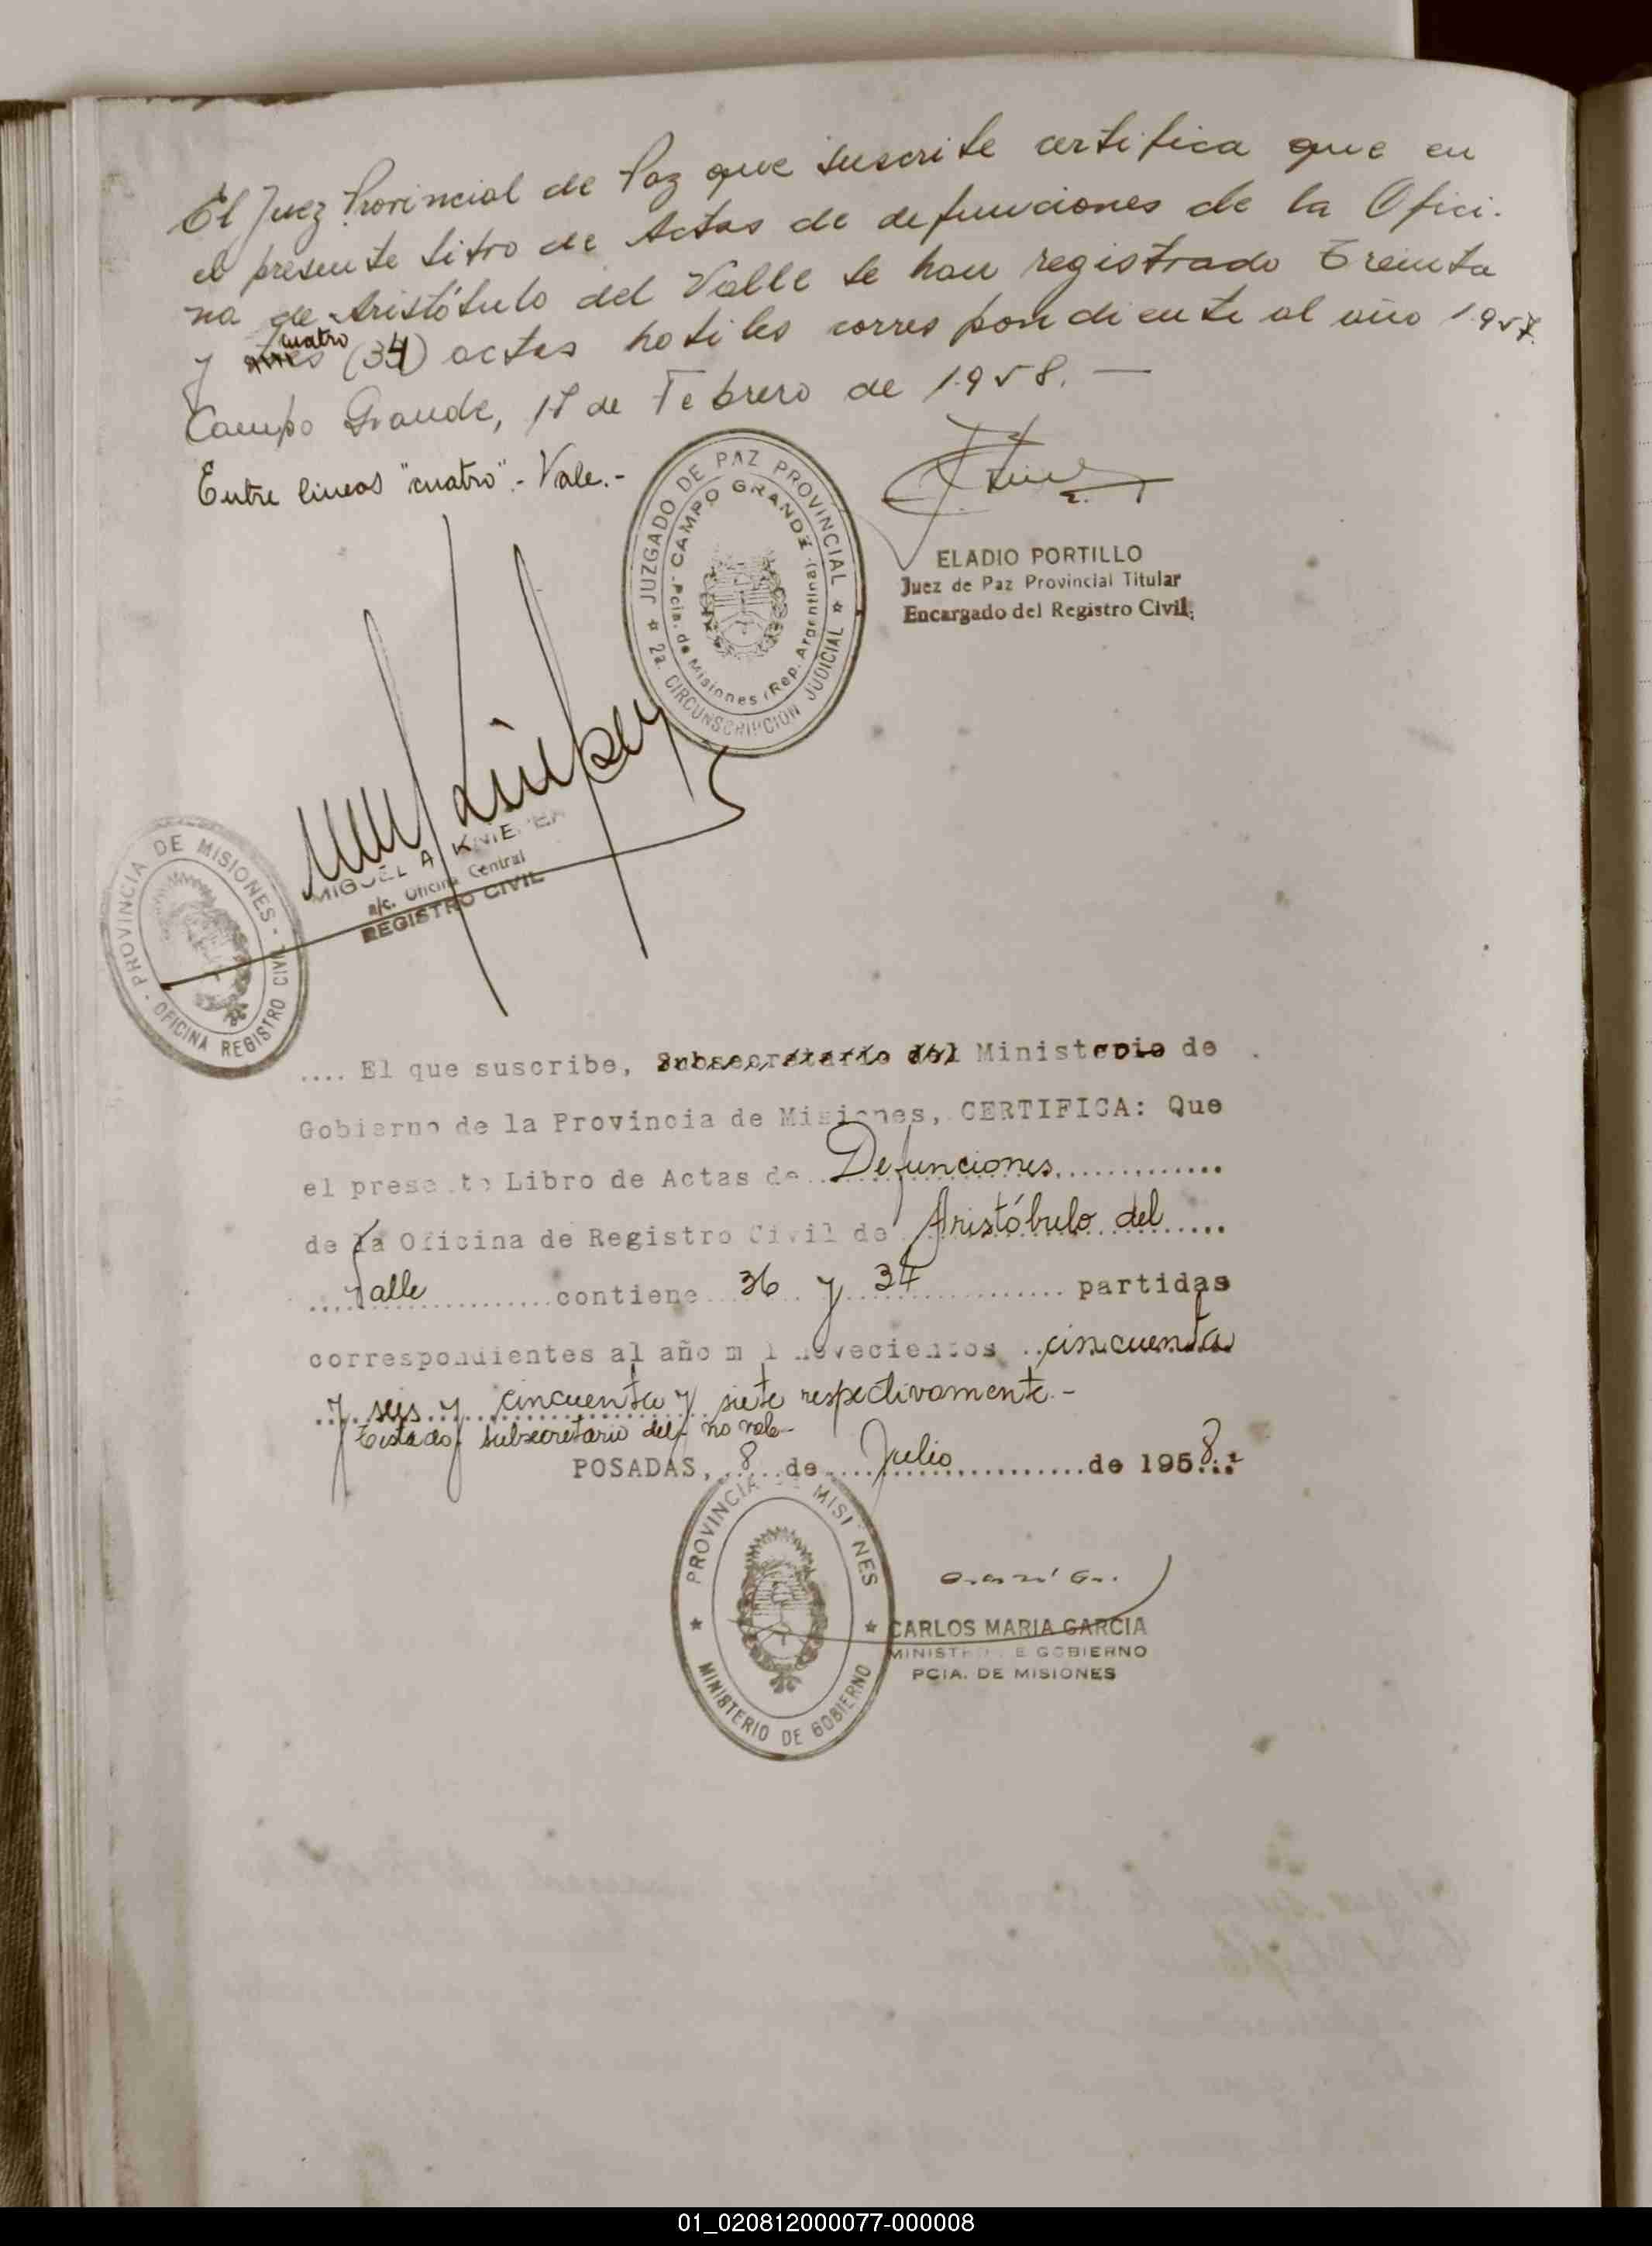 El Juez Provincial de Paz que suscribe certifica que en
el presente libro de Actas de defunciones de la Ofici-
na de Aristóbulo del Valle se han registrado Treinta
cuatro
y tres (34) actas hábiles correspondiente al año 1.957.
Campo Grande, de Febrero de 1.958. —
Entre lineas "cuatro".- Vale.-
JUZGADO DE PAZ PROVINCIAL
2a. CIRCUNSCRIPCION JUDICIAL
CAMPO GRANDE
Pcia. de Misiones (Rep. Argentina)
ELADIO PORTILLO
Juez de Paz Provincial Titular
Encargado del Registro Civil.
MIGUEL A. KNIE
a/c. Oficina Central
REGISTRO CIVIL
PROVINCIA DE MISIONES
OFICINA REGISTRO CIVIL
.... El que suscribe, Subsecretario del Ministerio de
Gobierno de la Provincia de Misiones, CERTIFICA: Que
el presente Libro de Actas de Defunciones.............
de la Oficina de Registro Civil de Aristóbulo del.....
....Valle..........contiene 36 y 34.............. partidas
correspondientes al año mil novecientos ..cincuenta
y seis y cincuenta y siete respectivamente.-
Testado: subsecretario del: no vale-
POSADAS, 8 de Julio de 1958
PROVINCIA DE MISIONES
MINISTERIO DE GOBIERNO
CARLOS MARIA GARCIA
MINISTRO DE GOBIERNO
PCIA. DE MISIONES
01_020812000077-000008